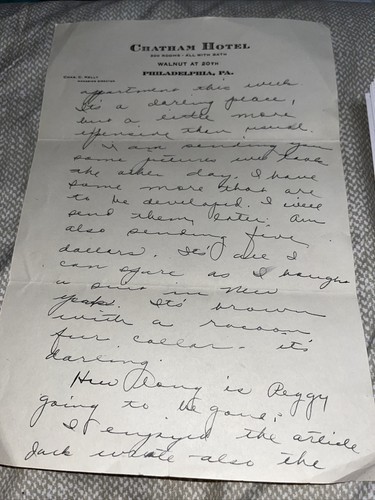 CHATHAM HOTEL
300 ROOMS - ALL WITH BATH
WALNUT AT 20TH
PHILADELPHIA, PA.
KELLY
MANAGING DIRECTOR
apartment this week
Its a darling place,
but a little more
expensive than usual.
I am sending you
some pictures we took
the other day. I have
some more that are
to be developed. I will
send them later. Am
also sending five
dollars. It's all I
can spare as I bought
a suit in New
York. It's brown
with a racoon
fur collar - it's
darling.
How long is Peggy
going to be gone?
I enjoyed the article
Jack wrote - also the